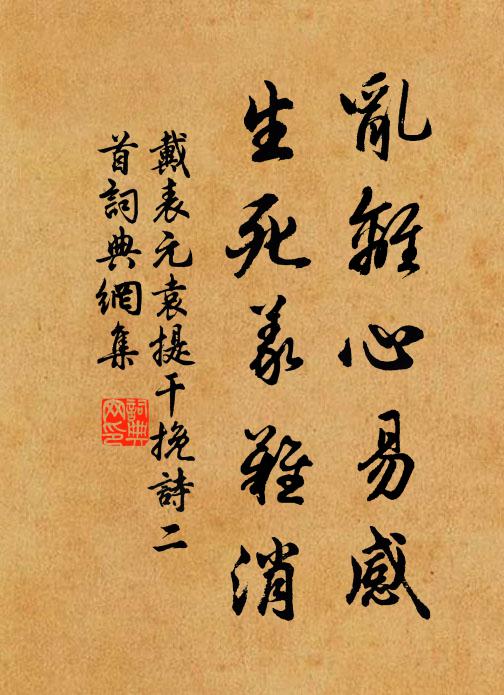 亂離心易感
生死義難消
戴表元袁提干挽詩二
首詞典網集
詞典
网印